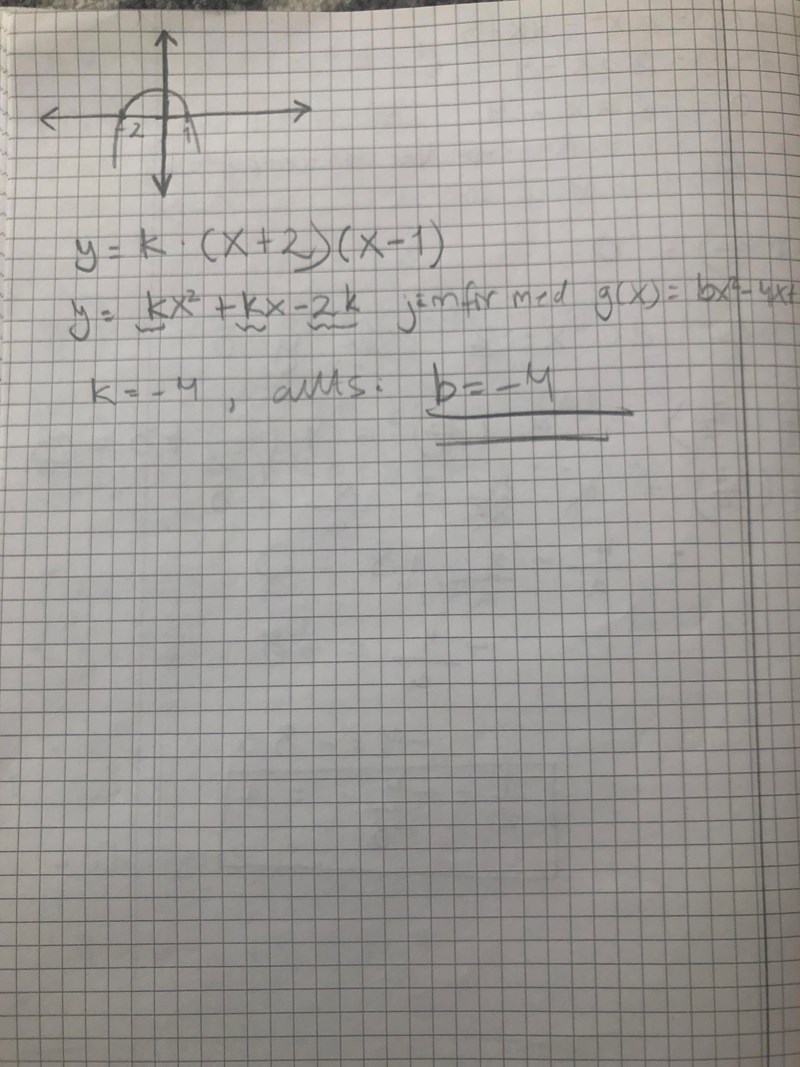 -2 1
y = k · (x+2)(x-1)
y = kx² + kx - 2k jämför med g(x) = bx² - 4x +
k = -4 , alltså: b = -4